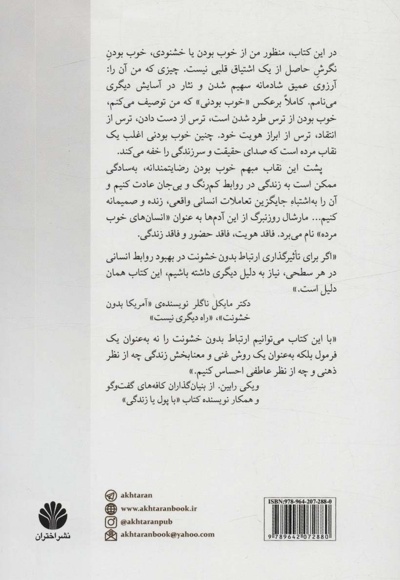 در این کتاب، منظور من از خوب بودن یا خشنودی، خوب بودنِ
نگرشِ حاصل از یک اشتیاق قلبی نیست. چیزی که من آن را:
آرزوی عمیق شادمانه سهیم شدن و نثار در آسایش دیگری
می‌نامم. کاملاً برعکس «خوب بودنی» که من توصیف می‌کنم،
خوب بودن از ترس طرد شدن است، ترس از دست دادن، ترس از
انتقاد، ترس از ابراز هویت خود. چنین خوب بودنی اغلب یک
نقاب مرده است که صدای حقیقت و سرزندگی را خفه می‌کند.
پشت این نقاب مبهم خوب بودن رضایتمندانه، به‌سادگی
ممکن است به زندگی در روابط کم‌رنگ و بی‌جان عادت کنیم و
آن را به‌اشتباه جایگزین تعاملات انسانی واقعی، زنده و صمیمانه
کنیم... مارشال روزنبرگ از این آدم‌ها به عنوان «انسان‌های خوب
مرده» نام می‌برد. فاقد هویت، فاقد حضور و فاقد زندگی.
«اگر برای تأثیرگذاری ارتباط بدون خشونت در بهبود روابط انسانی
در هر سطحی، نیاز به دلیل دیگری داشته باشیم، این کتاب همان
دلیل است.»
دکتر مایکل ناگلر نویسنده‌ی «آمریکا بدون
خشونت»، «راه دیگری نیست»
«با این کتاب می‌توانیم ارتباط بدون خشونت را نه به‌عنوان یک
فرمول بلکه به‌عنوان یک روش غنی و معنابخش زندگی چه از نظر
ذهنی و چه از نظر عاطفی احساس کنیم.»
ویکی رابین. از بنیان‌گذاران کافه‌های گفت‌وگو
و همکار نویسنده کتاب «یا پول یا زندگی»
akhtaran
www.akhtaranbook.ir
@akhtaranpub
akhtaranbook@yahoo.com
ISBN:978-964-207-288-0
9789642072880
نشر اختران